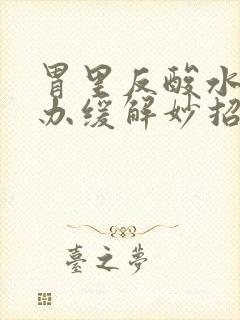 胃里反酸水
办缓解妙招
臺之夢